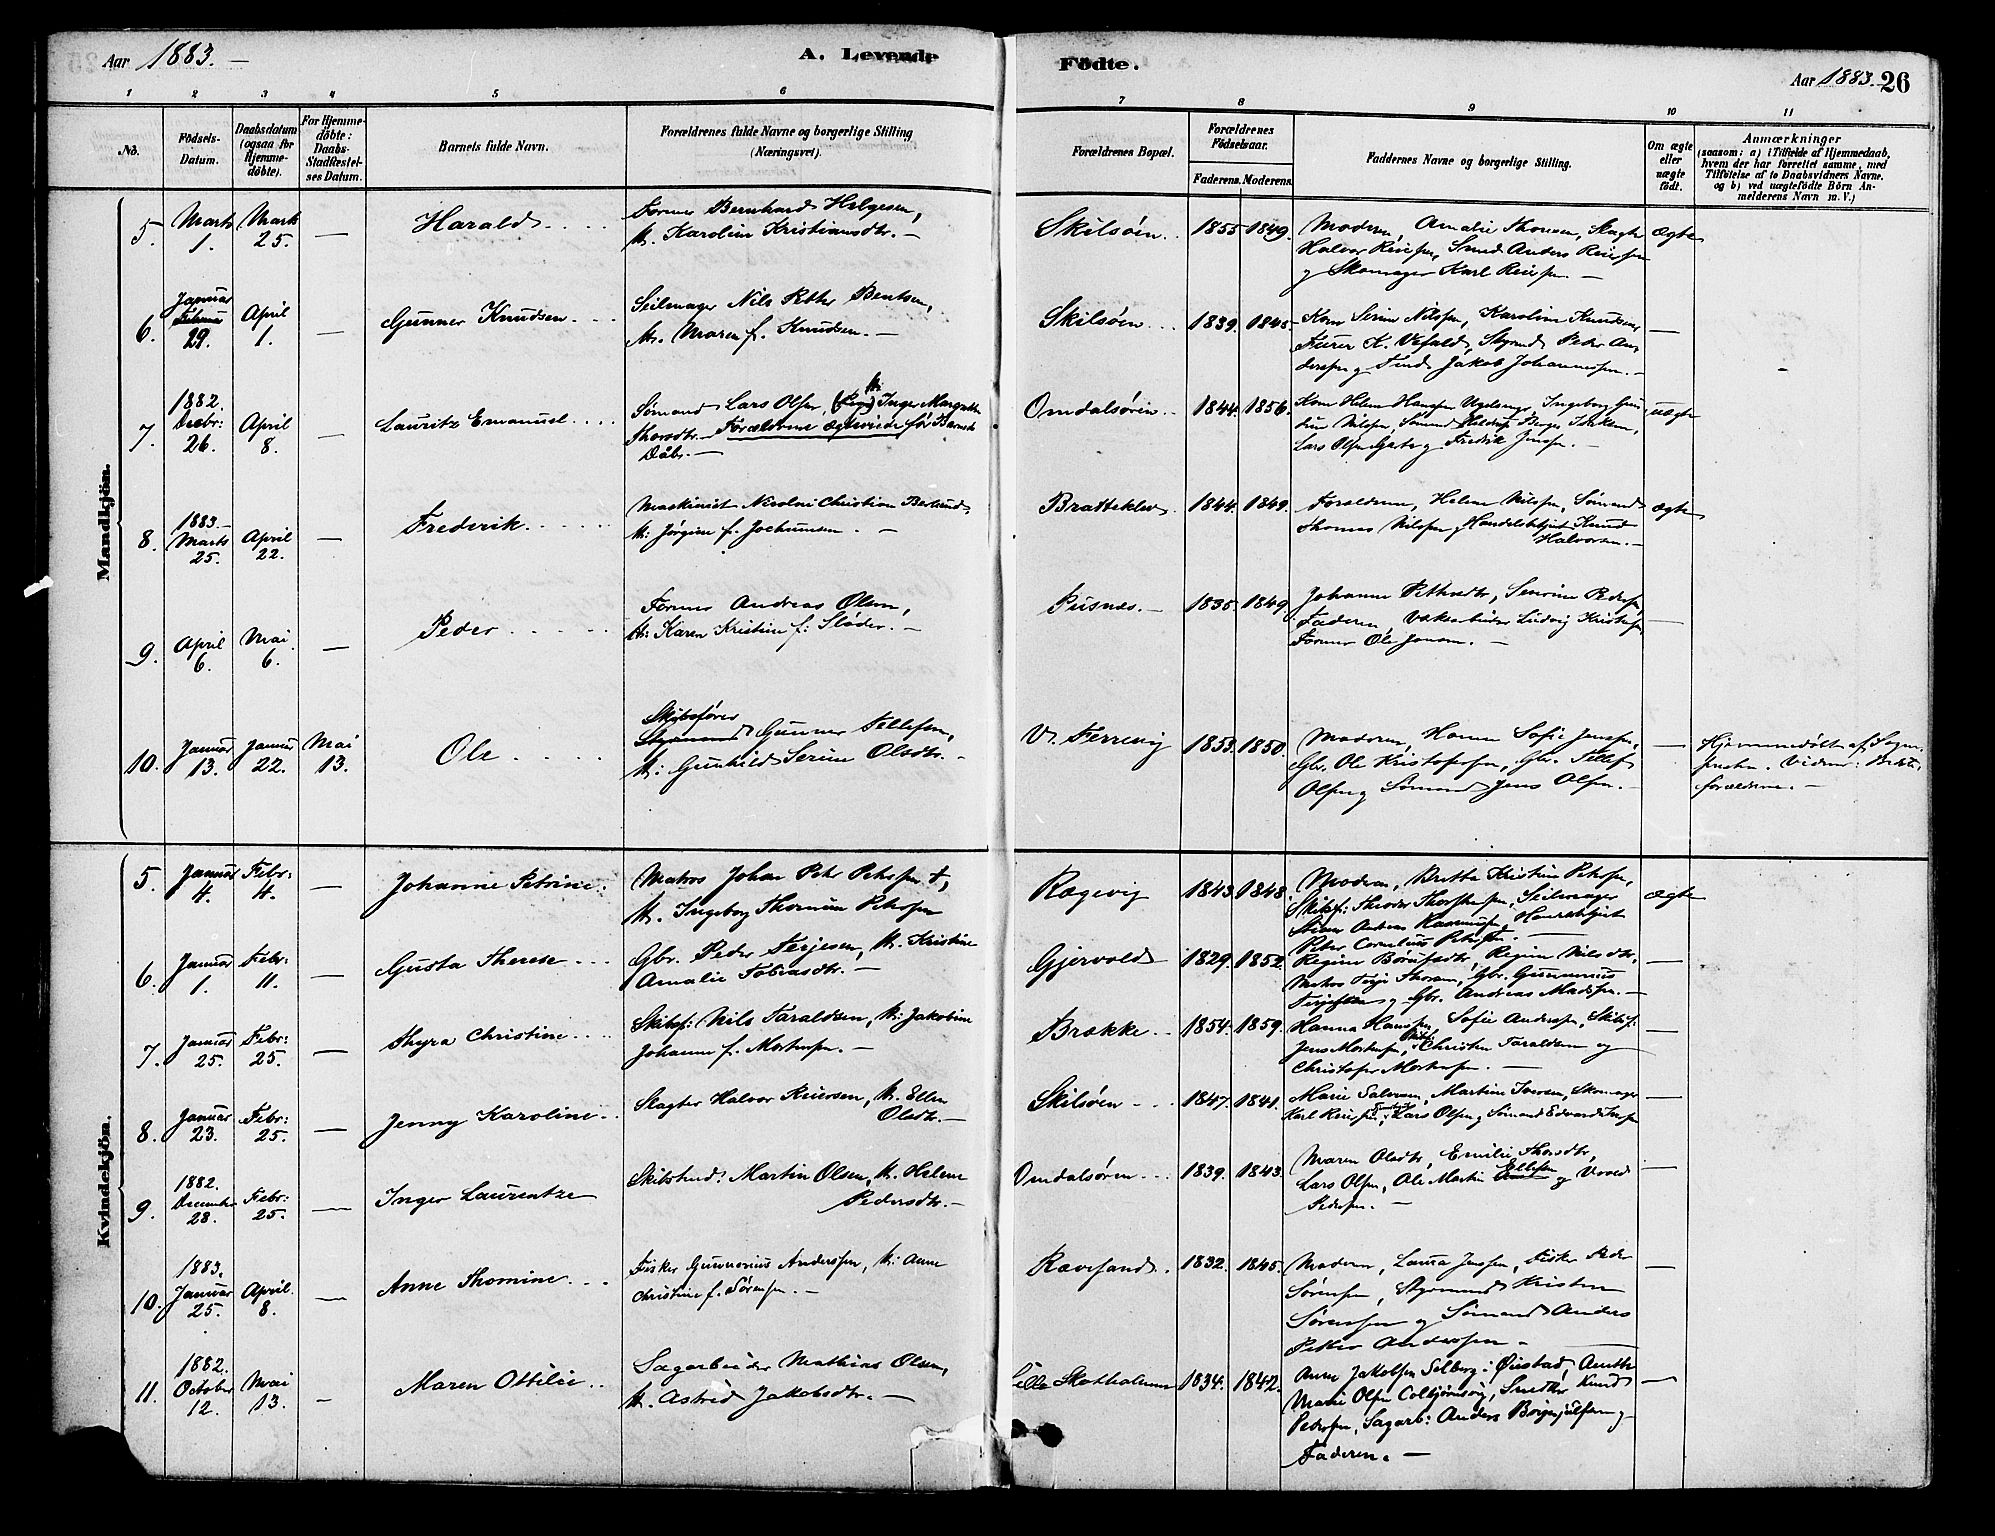 Aar 1883. —
A. Levende Födte.
Aar 1883. 26
1 2 3 4 5 6 7 8 9 10 11
No.
Födsels-Datum.
Daabsdatum (ogsaa for Hjemmedöbte).
For Hjemmedöbte: Daabs-Stadfæstelses Datum.
Barnets fulde Navn.
Forældrenes fulde Navne og borgerlige Stilling (Næringsvei).
Forældrenes Bopæl.
Forældrenes Födselsaar.
Faderens. Moderens.
Faddernes Navne og borgerlige Stilling.
Om ægte eller uægte födt.
Anmærkninger
(saasom: a) i Tilfælde af Hjemmedaab,
hvem der har forrettet samme, med
Tilföielse af to Daabsvidners Navne.
og b) ved uægtefödte Börn An-
melderens Navn m. V.)
Mandkjön.
5. Marts 1. Marts 25. — Harald
Former Bernhard Helgesen,
k. Karoline Kristiansdtr. —
Skilsöen. 1855 1849.
Moderen, Amalie Thorsen, Slagter
Halvor Reiersen, Smed Anders Reiersen
og Skomager Karl Reiersen. —
ægte
6. Januar 29. April 1. — Gunner Knudsen
Seilmager Nils Petter Bentsen,
k. Maren f. Knudsen. —
Skilsöen 1839. 1845.
Kone Serine Nilsen, Karoline Knudsen,
K. Vefald, Styrmd Peter An-
dersen og Jakob Johannessen. —
—
7. 1882. Decbr: 26. April 8. — Lauritz Emanuel
Sömand Lars Olsen, k: Inger Margrethe
Thorsdtr. Forældrene ægteviede för Barnets
Dåb. —
Omdalsören 1844. 1856.
Kone Helene Hansen Ingeborg
Nilsen, Sömand
Lars Olsen og Fredrik Jensen. —
uægte
8. 1883. Marts 25. April 22. — Frederik
Maskinist Nicolai Christian Berlund
k: Jørgine f. Jochumsen. —
Bratteklev 1844. 1849.
Forældrene, Helene Nilsen, Sömand
Thomas Nilsen og Handelsbetjent Knud
Halvorsen. —
ægte
9. April 6. Mai 6. — Peder
Former Andreas Olsen,
k: Karen Kristine f: Sløder. —
Pusnes. — 1835. 1849.
Johanne Pettersdtr, Severine Peders.
Faderen, Ludvig Kristofs.
Former Ole Jensen. —
—
10. Januar 13. Januar 22. Mai 13. Ole
Skibsförer
Gunner Tellefsen,
k: Gunhild Serine Olsdtr. —
V. Ferrevig 1853. 1850.
Moderen, Hanna Sofie Jensen,
Gbr. Ole Kristofersen, Gbr. Tellef
Olsen og Sömand Jens Olsen. —
—
Hjemmedöbt af Sogne-
presten. Vidner: Bedste-
forældrene. —
Kvindekjön.
5. Januar 4. Febr: 4. — Johanne Petrine.
Matros Johan Petter Petersen †,
k. Ingeborg Thomine Petersen
Rægevig 1843 1848.
Moderen, Kristine Petersen,
Skibsf: Theodor Seilmager
Andreas Handelsbetjent
Peter Cornelius Petersen. —
ægte
6. Januar 1. Febr: 11. — Gusta Therese
Gbr. Peder Terjesen, k. Kristine
Amalie Tobiasdtr. —
Gjervold 1829. 1852.
Regine Regine Nilsdtr,
Matros Terje Thorsen, Gbr. Gunnerius
Terjesen og Gbr. Andreas Madsen. —
—
7. Januar 25. Febr: 25. — Thyra Christine
Skibsf: Nils Taraldsen, k: Jakobine
Johanne f. Mortensen. —
Brække 1854. 1859.
Hanna Hansen, Sofie Andersen, Skibsf:
Jens Mortensen, Christen Taraldsen og
Christofer Mortensen. —
—
8. Januar 23. Febr: 25. — Jenny Karoline
Slagter Halvor Reiersen, k. Ellen
Olsdtr. —
Skilsöen 1847. 1841.
Marie Salvesen, Martine Iversen, Skomager
Karl Reiersen, Lars Olsen og Sömand Edvard
—
9. 1882. December 28. Febr: 25. — Inger Laurentze
Martin Olsen, k. Helene
Pedersdtr. —
Omdalsören 1839. 1843.
Maren Olsdtr, Emilie Thorsdtr,
Lars Olsen, Ole Martin Ellefsen og
Pedersen. —
—
10. 1883. Januar 25. April 8. — Anne Thomine
Fisker Gunnerius Anderssen, k: Anne
Christine f. Sørensen. —
Ravesand. 1832. 1845.
Moderen, Laura Jensen, Fisker Peder
Sørensen, Styrmand Kristen
Sørensen og Sömand Anders
Petter Anderssen —
—
11. 1882. October 12. Mai 13. — Maren Ottilie
Sagarbeider Mathias Olsen,
k. Astrid Jakobsdtr. —
Lille Skotholmen 1834. 1842.
Anne Jakobsen Selberg i Øiestad, Anette
Marie Olsen Colbjørnsvig, Knud
Petersen, Sagarb: Anders Børgejulsen og
Faderen. —
—